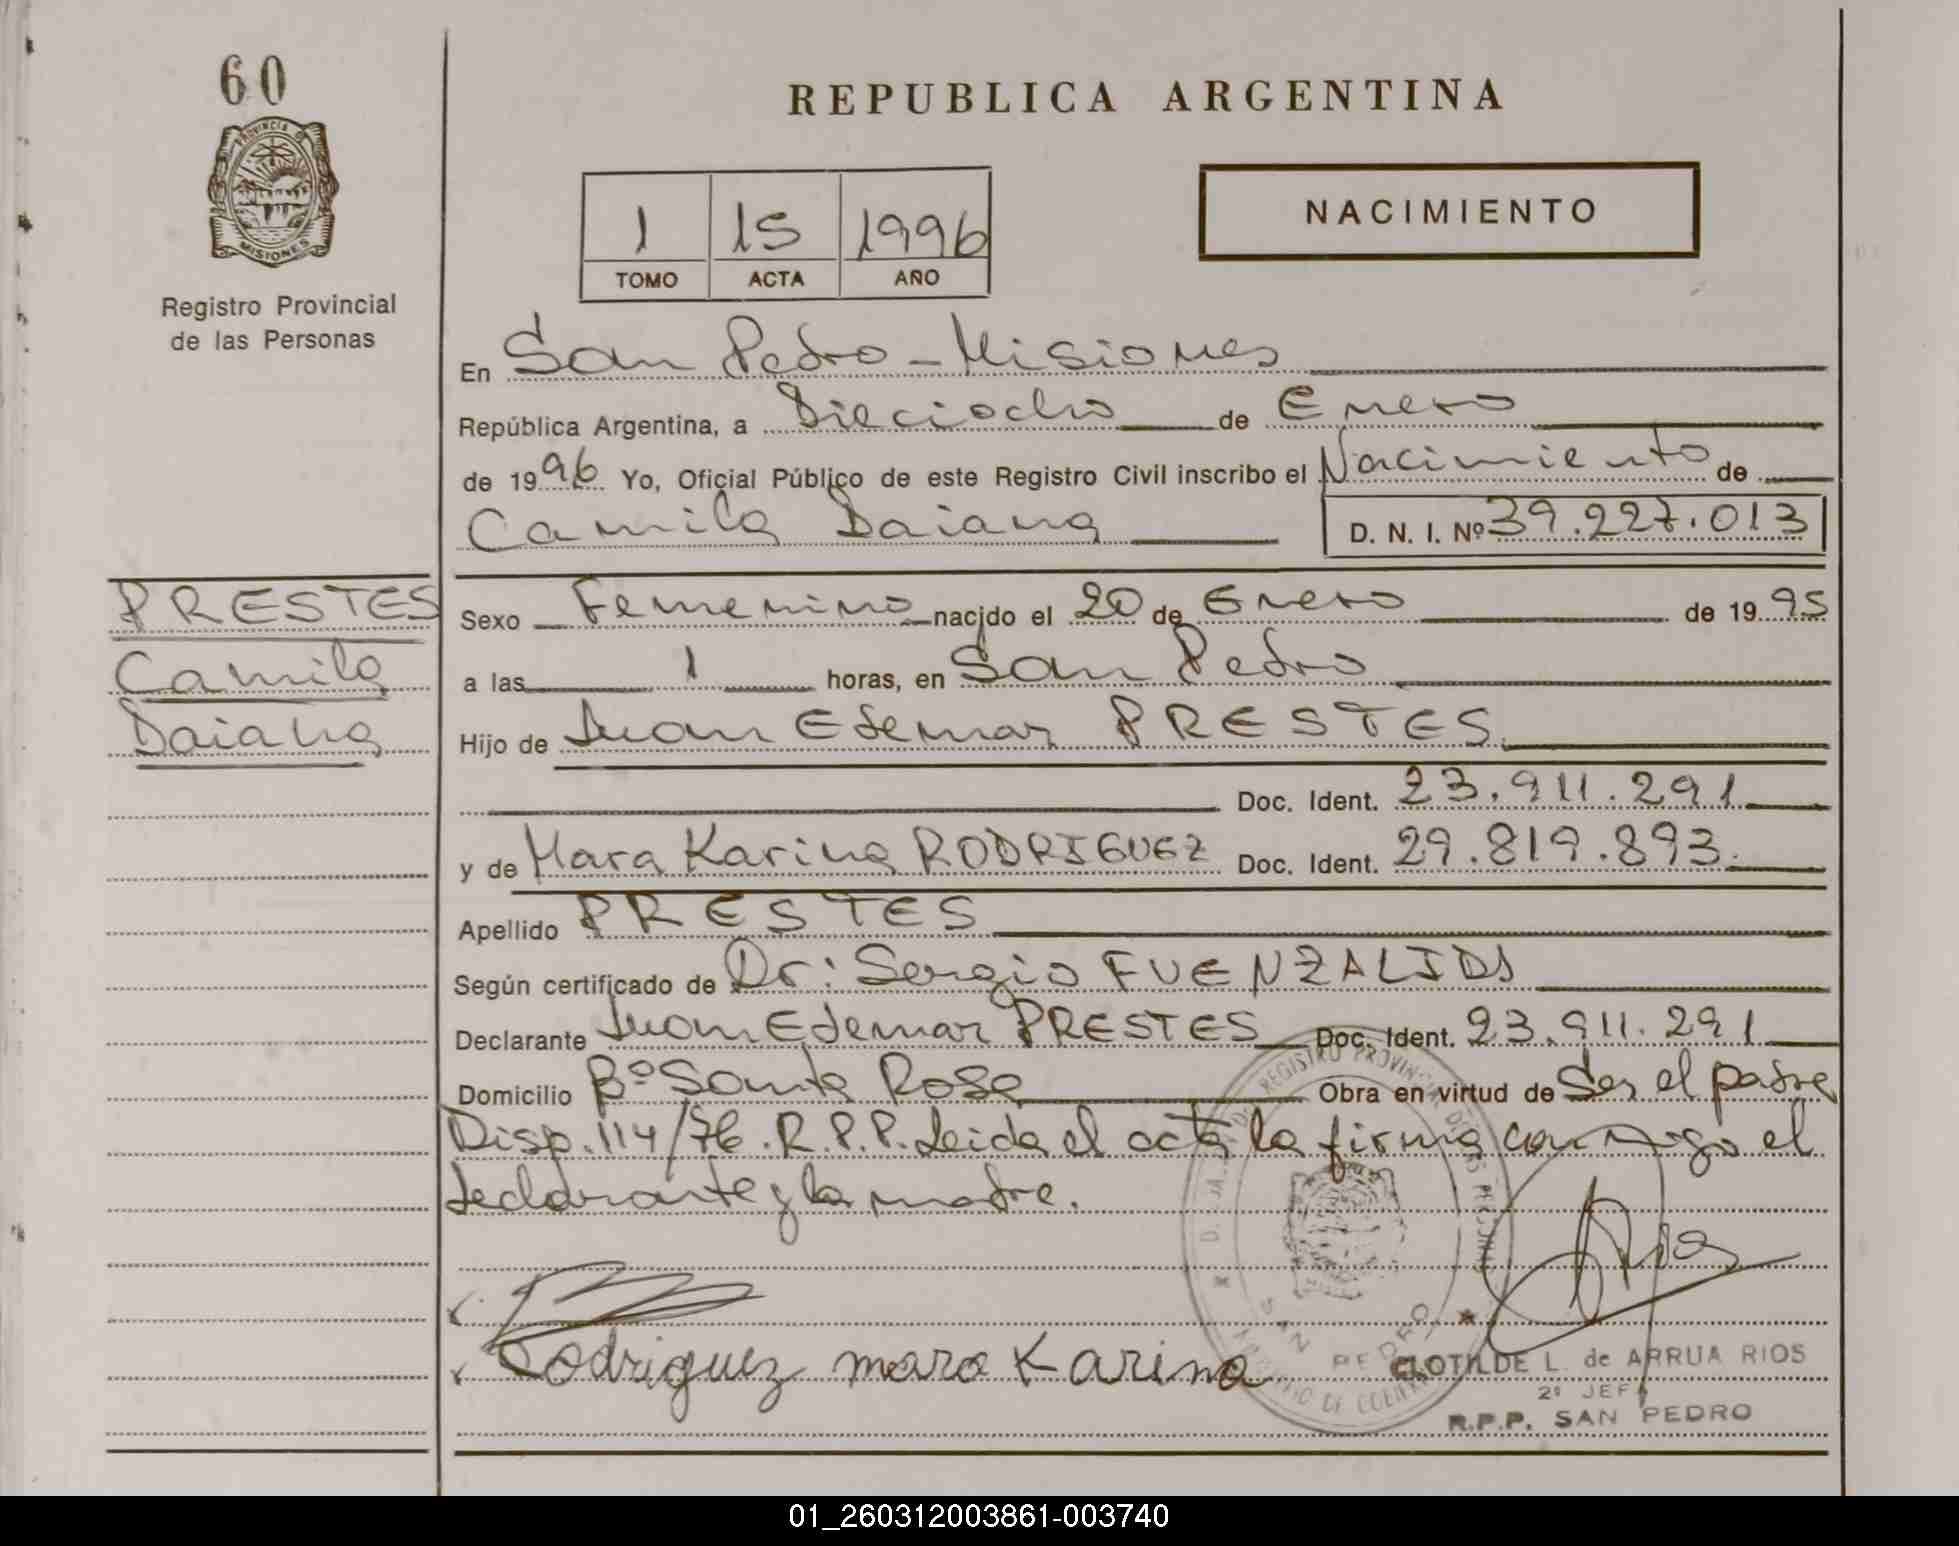 60
PROVINCIA DE
MISIONES
Registro Provincial
de las Personas
REPUBLICA ARGENTINA
1 15 1996
TOMO ACTA AÑO
NACIMIENTO
En San Pedro - Misiones
República Argentina, a Dieciocho de Enero
de 1996 Yo, Oficial Público de este Registro Civil inscribo el Nacimiento de
Camila Daiana D. N. I. Nº 39.227.013
PRESTES
Camila
Daiana
Sexo Femenino nacido el 20 de Enero de 1995
a las 1 horas, en San Pedro
Hijo de Juan Edemar PRESTES
Doc. Ident. 23.911.291
y de Mara Karina RODRIGUEZ Doc. Ident. 29.819.893.
Apellido PRESTES
Según certificado de Dr: Sergio FUENZALIDA
Declarante Juan Edemar PRESTES Doc. Ident. 23.911.291
Domicilio Bº Santa Rosa Obra en virtud de Ser el padre
Disp. 114/76. R.P.P. Leida el acta la firma conmigo el
declarante y la madre.
REGISTRO PROVINCIAL DE LAS PERSONAS
SAN PEDRO
Rios
Rodriguez mara Karina
CLOTILDE L. de ARRUA RIOS
2º JEFA
R.P.P. SAN PEDRO
01_260312003861-003740